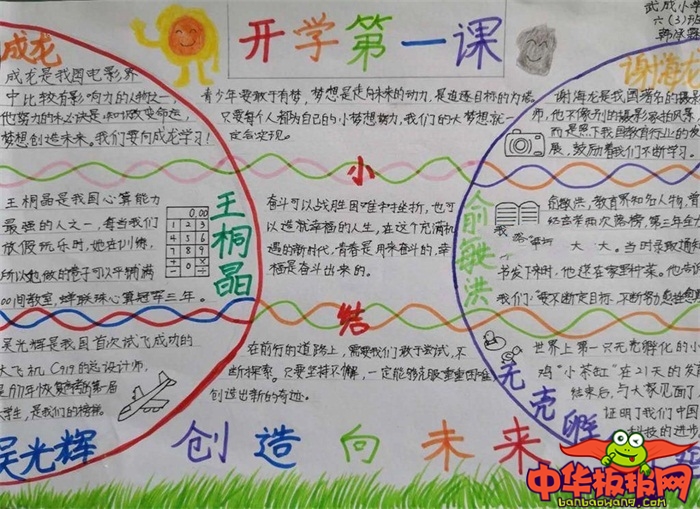 开学第一课
武成小学
六(3)班
成龙
成龙是我国电影界
中比较有影响力的人物之一,
他努力的木必诀是:知识改变命运,
梦想创造未来。我们要向成龙学习!
青少年要敢于有梦,梦想是走向未来的动力,是追逐目标的方塔
只要每个人都为自己的小梦想努力,我们的大梦想就一
定会实现。
谢海龙
谢海龙是我国著名的摄影
师,他不像别的摄影家拍风景,
而是照下我国教育行业的发
展,鼓励着我们不断学习。
王桐晶
王桐晶是我国心算能力
最强的人之一,每当我们
放假玩乐时,她在训练,
所以她做的卷子可以平铺满
00间教室,蝉联珠心算冠军三年。
0.00
1 2 3
4 5 6
7 8 9
小
结
奋斗可以战胜困难和挫折,也可
以造就幸福的人生,在这个充满机
遇的新时代,青春是用来奋斗的,幸
福是奋斗出来的。
俞敏洪
俞敏洪,教育界知名人物,曾
经连考两次落榜,第三年奋力
大 大。当时录取通知
书发下来时,他还在家里种菜。他告诉
我们:“要不断定目标,不断努力
吴光辉
吴光辉是我国首次试飞成功的
大飞机C919的总设计师,
是1977年恢复高考的第一届
大学生,是我们的榜样。
在前行的道路上,需要我们敢于尝试,不
断探索。只要坚持不懈,一定能够克服重重困难
创造出新的奇迹。
无壳孵
世界上第一只无壳孵化的小
鸡“小茶缸”在21天的
结束后,与大家见面了,
证明了我们中国
科技的进步
创造向未来
中华板报网
banbaowang.com